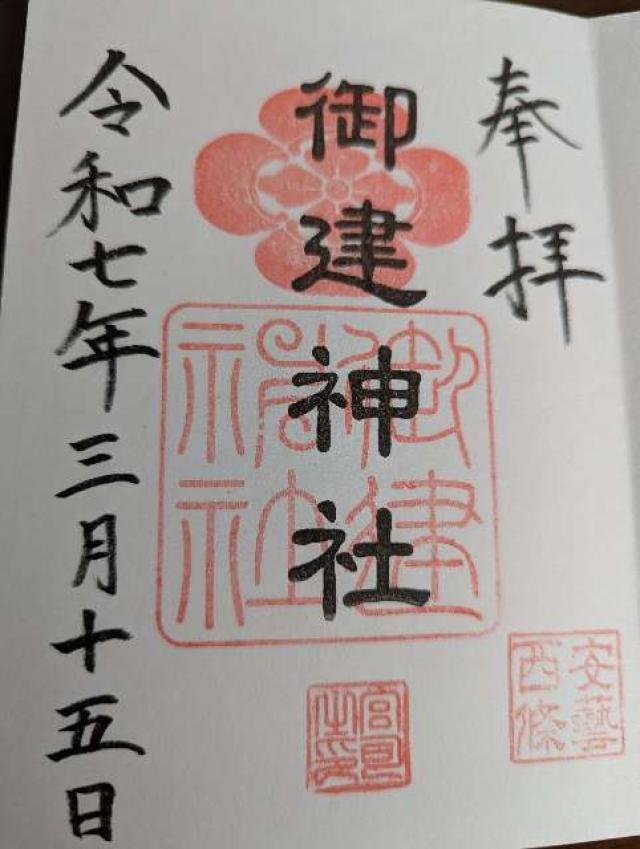 奉拝
御建神社
御建神社
安藝西條
宮司之印
令和七年三月十五日